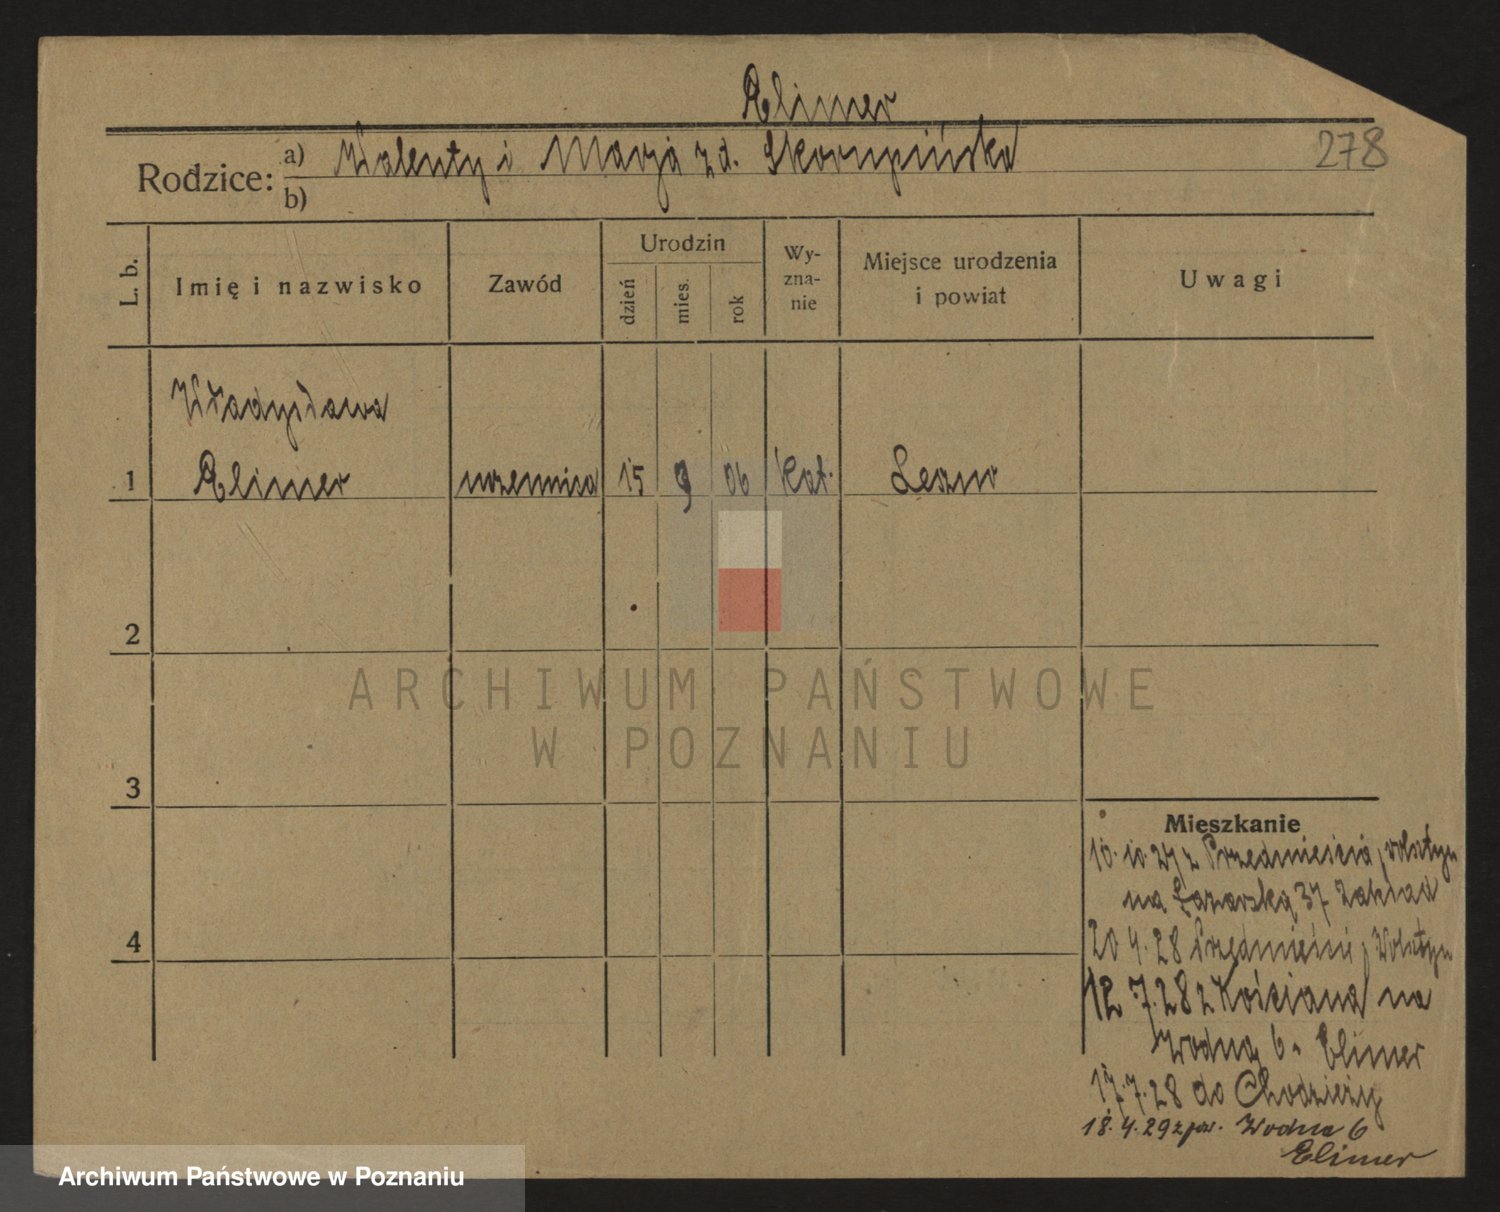 Elimer
278
Rodzice: a) Walenty i Marja z d. Skorupińska
b)
L. b.
Imię i nazwisko
Zawód
Urodzin
dzień
mies.
rok
Wy-
zna-
nie
Miejsce urodzenia
i powiat
Uwagi
Władysława
1 Elimer uczennica 15 9 06 kat. Leszno
2
3
4
Mieszkanie
10. 10. 27 z Przedmieścia,
na Łazarską 37 Zakład
20 4. 28 Przedmieście,
12 7. 28 z Kościana na
Wodną 6 Elimer
17. 7. 28 do Chodzieży
18. 4. 29 z Wodna 6
Elimer
ARCHIWUM PAŃSTWOWE
W POZNANIU
Archiwum Państwowe w Poznaniu